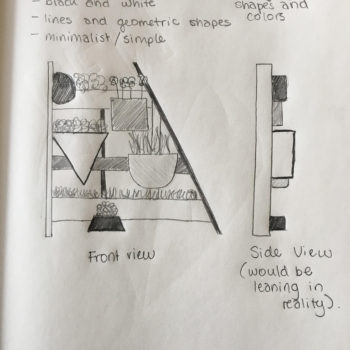 - black and white
shapes and
colors
- lines and geometric shapes
- minimalist/simple
Front view
Side View
(would be
leaning in
reality).